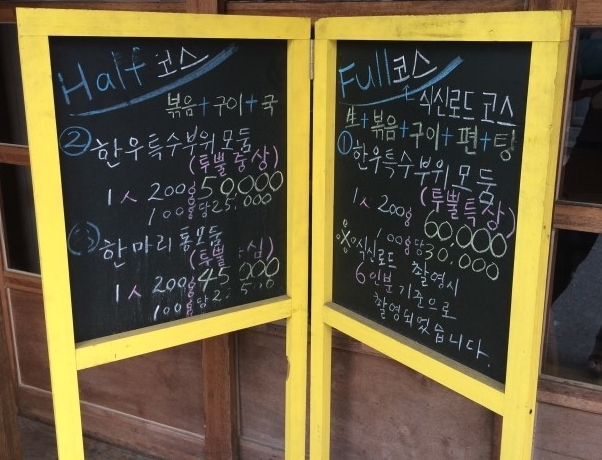 Half 코스
볶음+구이+국
② 한우특수부위모둠
(투뿔중상)
1人 200g 50,000
100g당 25,000
한마리 통모둠
1人 200g
100g당
Full코스
식신로드 코스
生+볶음+구이+편+탕
① 한우특수부위모둠
(투뿔특상)
1人 200g 60,000
100g당 30,000
※식신로드 촬영시
6인분 기준으로
촬영되었습니다.